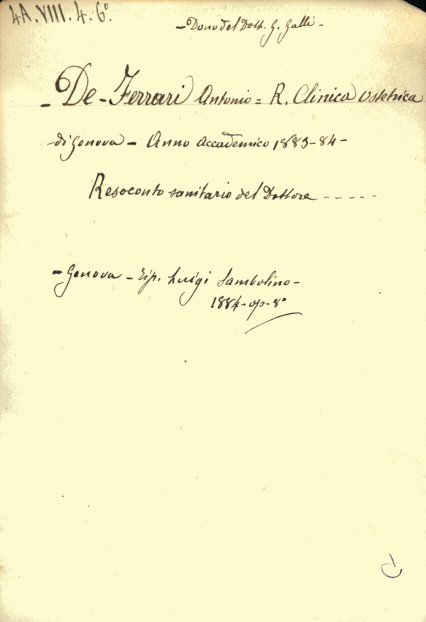 4A.VIII.4.6°
- Dono del Dott. G. Galli -
- De-Ferrari Antonio = R. Clinica Ostetrica
di Genova - Anno Accademico 1883-84 -
Resoconto sanitario del Dottore - - - - -
- Genova - Tip. Luigi Sambolino -
1884 - op - 8°